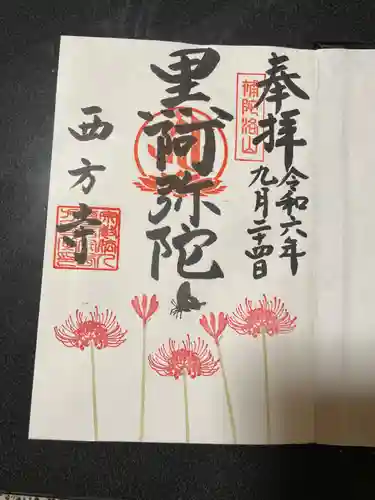 奉拝
令和六年
九月二十四日
補陀洛山
黒阿弥陀
西方寺